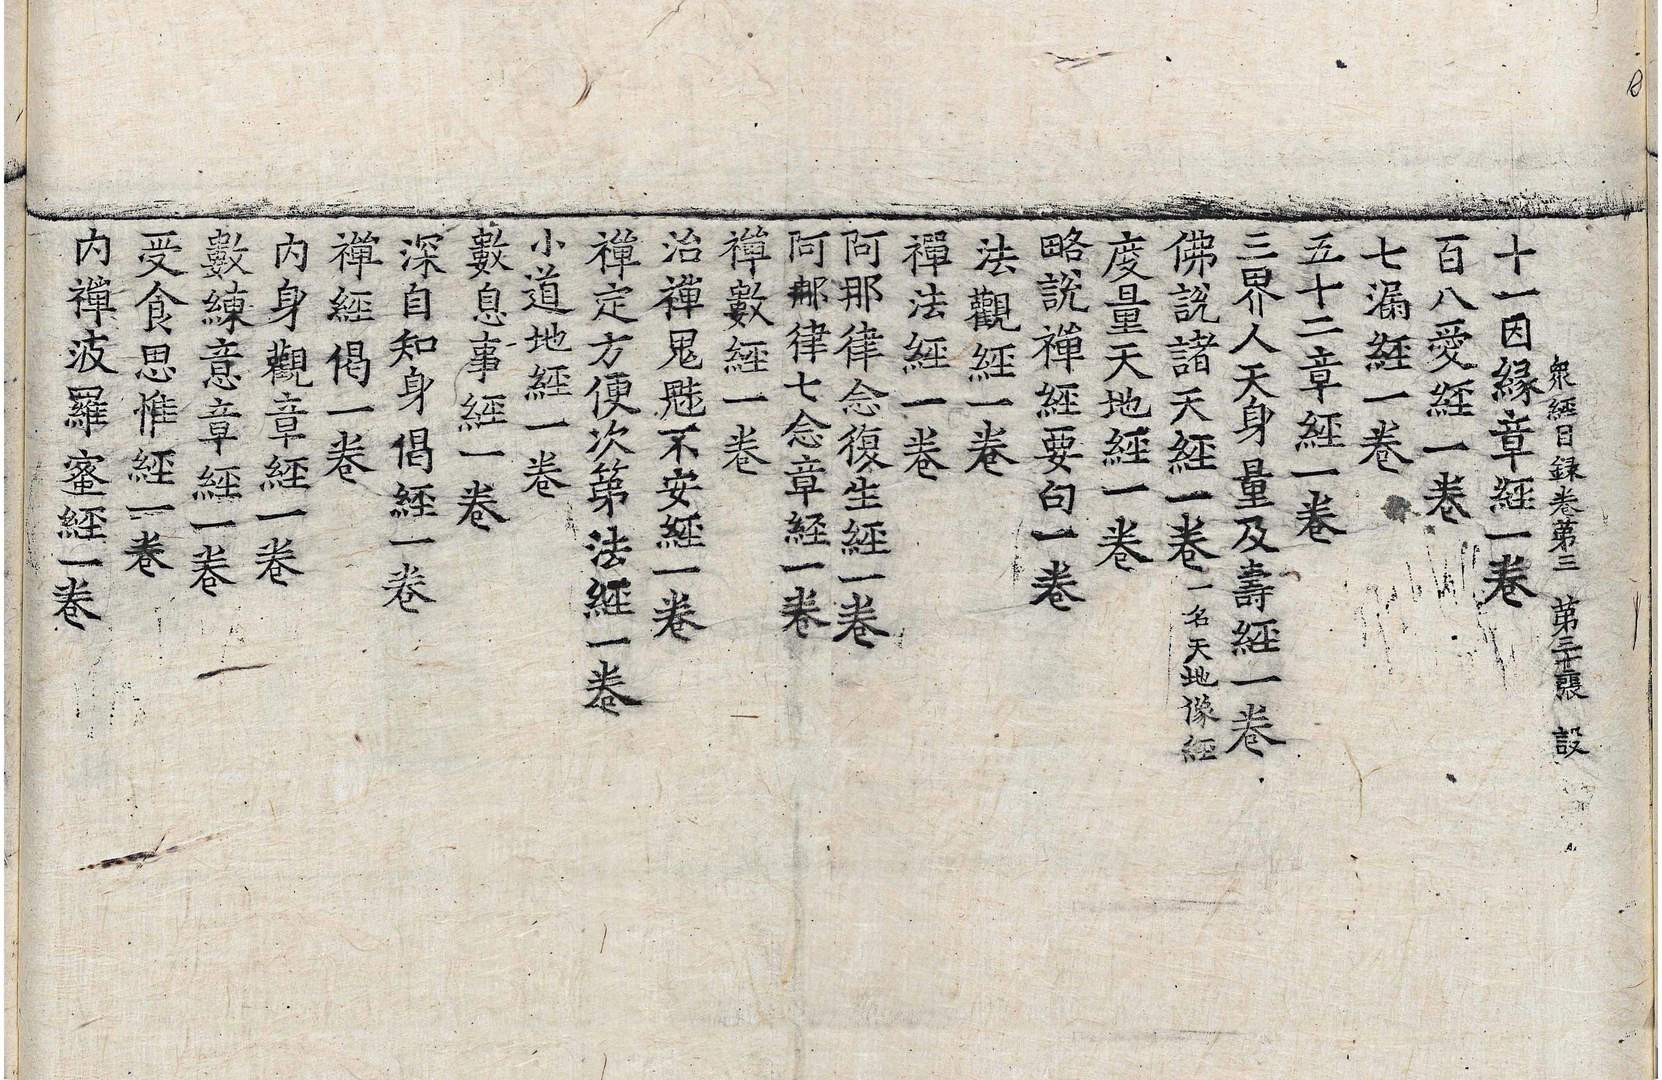 衆經目録卷第三　第三十張　設
十一因緣章經一卷
百八愛經一卷
七漏經一卷
五十二章經一卷
三界人天身量及壽經一卷
佛說諸天經一卷一名天地像經
度量天地經一卷
略說禪經要句一卷
法觀經一卷
禪法經一卷
阿那律念復生經一卷
阿那律七念章經一卷
禪數經一卷
治禪鬼魅不安經一卷
禪定方便次第法經一卷
小道地經一卷
數息事經一卷
深自知身偈經一卷
禪經偈一卷
内身觀章經一卷
數練意章經一卷
受食思惟經一卷
内禪波羅蜜經一卷